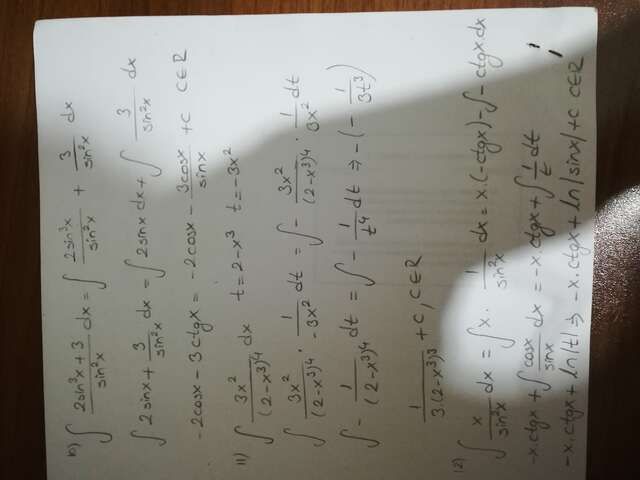 10) ∫ (2sin³x + 3)/(sin²x) dx = ∫ (2sin³x)/(sin²x) + 3/(sin²x) dx
∫ 2sinx + 3/(sin²x) dx = ∫ 2sinx dx + ∫ 3/(sin²x) dx
-2cosx - 3ctgx = -2cosx - (3cosx)/(sinx) + C C∈R
11) ∫ (3x²)/((2-x³)⁴) dx t = 2-x³ t = -3x²
∫ (3x²)/((2-x³)⁴) · 1/(-3x²) dt = ∫ - (3x²)/((2-x³)⁴) · 1/(3x²) dt
∫ - 1/((2-x³)⁴) dt = ∫ - 1/(t⁴) dt ⇒ -(- 1/(3t³))
1/(3·(2-x³)³) + C, C∈R
12) ∫ x/(sin²x) dx = ∫ x · 1/(sin²x) dx = x·(-ctgx) - ∫ -ctgx·dx
-x·ctgx + ∫ (cosx)/(sinx) dx = -x·ctgx + ∫ 1/t dt
-x·ctgx + ln|t| ⇒ -x·ctgx + ln|sinx| + C C∈R